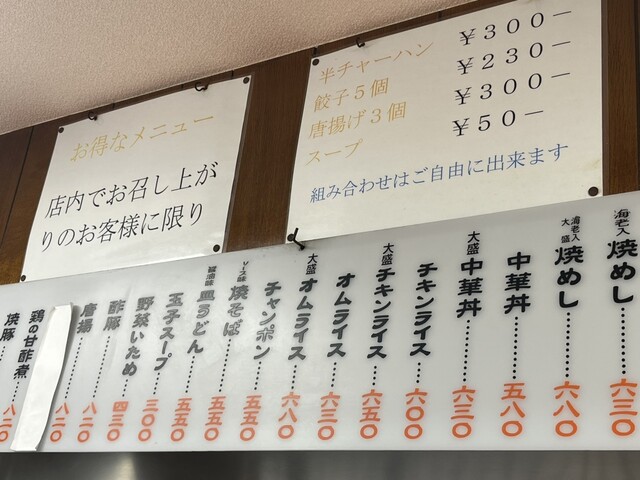 お得なメニュー
店内でお召し上が
りのお客様に限り
半チャーハン ￥３００－
餃子５個 ￥２３０－
唐揚げ３個 ￥３００－
スープ ￥５０－
組み合わせはご自由に出来ます
海老入 焼めし……六三〇
海老入 大盛 焼めし……六八〇
中華丼……五八〇
大盛 中華丼……六三〇
チキンライス……六〇〇
大盛 チキンライス……六五〇
オムライス……六三〇
大盛 オムライス……六八〇
チャンポン……五五〇
ソース味 焼そば……五五〇
醤油味 皿うどん……五五〇
玉子スープ……三〇〇
野菜いため……四三〇
酢豚……八二〇
唐揚……八二〇
鶏の甘酢煮……八二〇
焼豚